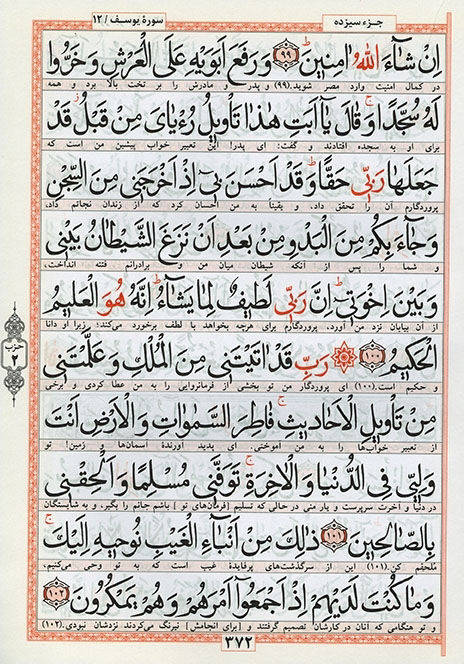 جزء سیزده
سورهٔ یوسف / ۱۲
اِنْ شَاۤءَ اللهُ اٰمِنينَ ﴿۹۹﴾ وَ رَفَعَ اَبَوَيْهِ عَلَى الْعَرْشِ وَ خَرُّوا
در کمال امنیت وارد مصر شوید. (۹۹) و پدر و مادرش را بر تخت بالا برد و همه
لَهُ سُجَّدًا وَ قَالَ يَا اَبَتِ هٰذَا تَأْويلُ رُءْيَایَ مِنْ قَبْلُ قَدْ
برای او به سجده افتادند و گفت: ای پدر! این تعبیر خواب پیشین من است که
جَعَلَهَا رَبّى حَقًّا وَ قَدْ اَحْسَنَ بى اِذْ اَخْرَجَنى مِنَ السِّجْنِ
پروردگارم آن را تحقق داد، و یقیناً به من احسان کرد که از زندان نجاتم داد،
وَ جَاۤءَ بِكُمْ مِنَ الْبَدْوِ مِنْ بَعْدِ اَنْ نَزَغَ الشَّيْطَانُ بَيْنى
و شما را پس از آنکه شیطان میان من و برادرانم فتنه انداخت،
وَ بَيْنَ اِخْوَتى اِنَّ رَبّى لَطيفٌ لِمَا يَشَاۤءُ اِنَّهُ هُوَ الْعَليمُ
از آن بیابان نزد من آورد، پروردگارم برای هرچه بخواهد با لطف برخورد می‌کند؛ زیرا او دانا
الْحَكيمُ ﴿۱۰۰﴾ رَبِّ قَدْ اٰتَيْتَنى مِنَ الْمُلْكِ وَ عَلَّمْتَنى
و حکیم است. (۱۰۰) ای پروردگار من تو بخشی از فرمانروایی را به من عطا کردی و برخی
مِنْ تَأْويلِ الْاَحَاديثِ فَاطِرَ السَّمٰوَاتِ وَ الْاَرْضِ اَنْتَ
از تعبیر خواب‌ها را به من آموختی. ای پدید آورندهٔ آسمان‌ها و زمین! تو
وَلِيّى فِى الدُّنْيَا وَ الْاٰخِرَةِ تَوَفَّنى مُسْلِمًا وَ اَلْحِقْنى
در دنیا و آخرت سرپرست و یار منی در حالی که تسلیم [فرمان‌های تو] باشم جانم را بگیر، و به شایستگان
بِالصَّالِحينَ ﴿۱۰۱﴾ ذٰلِكَ مِنْ اَنْبَاۤءِ الْغَيْبِ نُوحيهِ اِلَيْكَ
مُلحقم کن. (۱۰۱) این از سرگذشت‌های پرفایدهٔ غیب است که به تو وحی می‌کنیم،
وَ مَا كُنْتَ لَدَيْهِمْ اِذْ اَجْمَعُوۤا اَمْرَهُمْ وَ هُمْ يَمْكُرُونَ ﴿۱۰۲﴾
و تو هنگامی که آنان در کارشان تصمیم گرفتند و [برای انجامش] نیرنگ می‌کردند نزدشان نبودی. (۱۰۲)
حزب
۲
۳۷۲